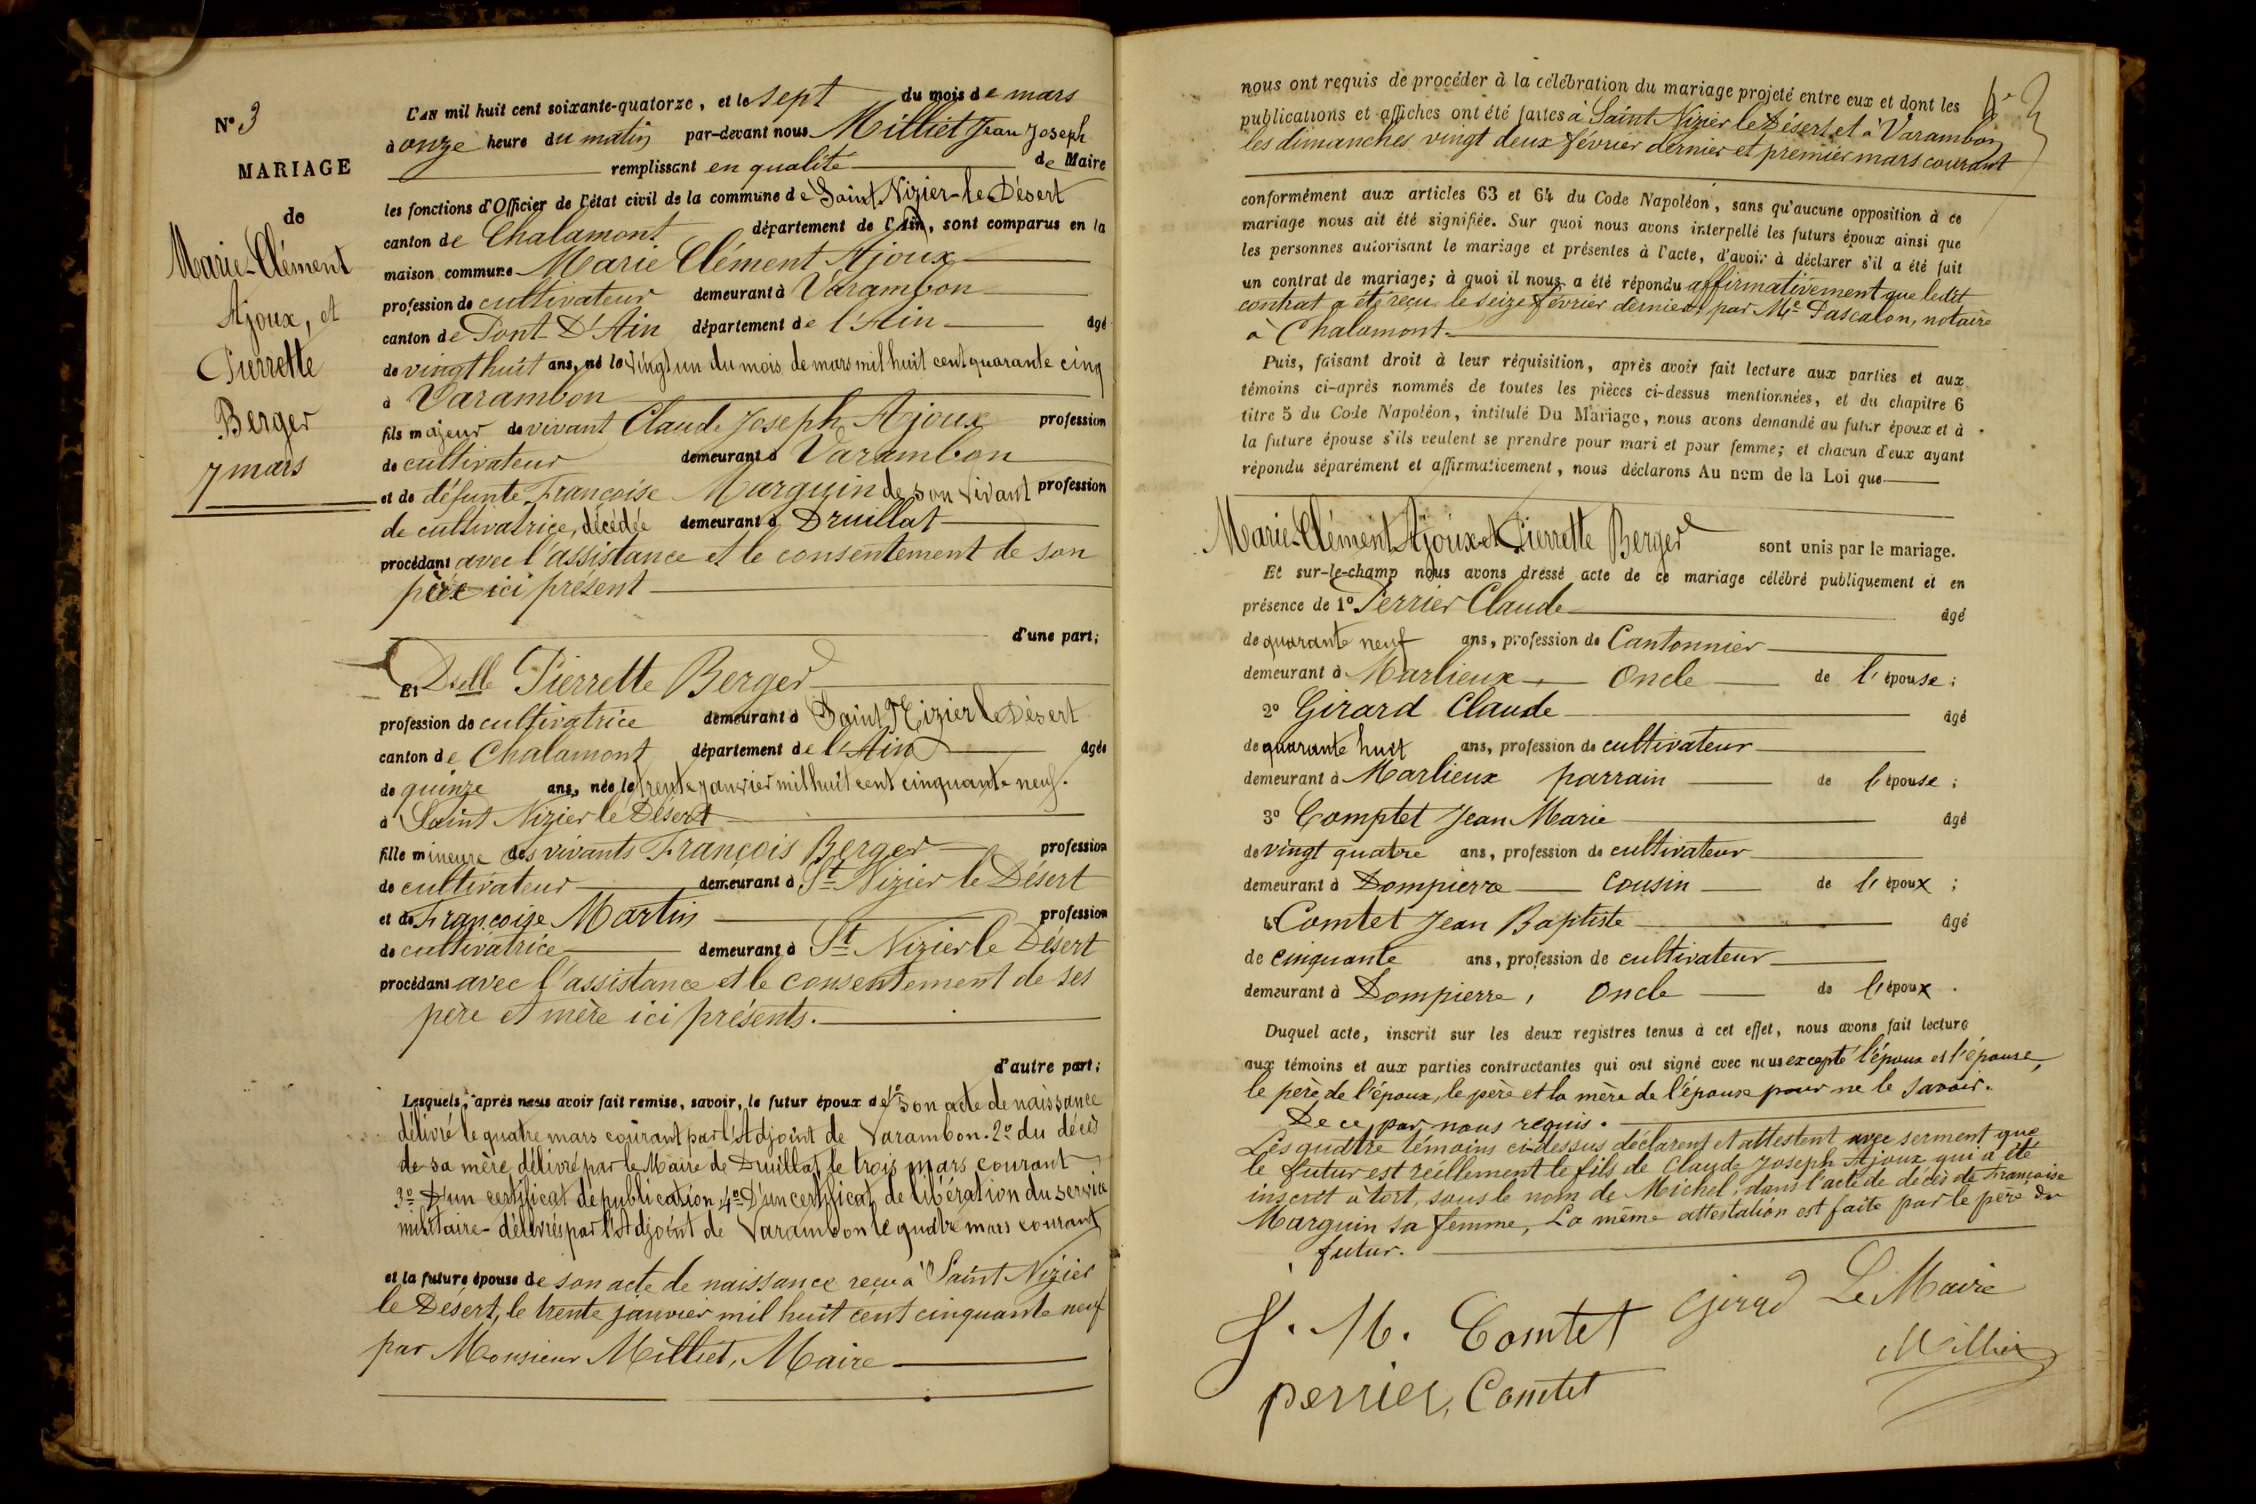 N° 3
MARIAGE
de
Marie-Clément
Ajoux, et
Pierrette
Berger
7 mars
L'AN mil huit cent soixante-quatorze, et le sept du mois de mars
à onze heure du matin par-devant nous Milliet Jean Joseph
remplissant en qualité de Maire
les fonctions d'Officier de l'état civil de la commune de Saint-Nizier-le-Désert
canton de Chalamont département de l'Ain, sont comparus en la
maison commune Marie Clément Ajoux
profession de cultivateur demeurant à Varambon
canton de Pont-D'Ain département de l'Ain âgé
de vingt huit ans, né le vingt un du mois de mars mil huit cent quarante cinq
à Varambon
fils majeur de vivant Claude Joseph Ajoux profession
de cultivateur demeurant à Varambon
et de défunte Françoise Marguin de son vivant profession
de cultivatrice, décédée demeurant à Druillat
procédant avec l'assistance et le consentement de son
père ici présent
d'une part;
Et Dselle Pierrette Berger
profession de cultivatrice demeurant à Saint Nizier le Désert
canton de Chalamont département de l'Ain âgée
de quinze ans, née le trente janvier mil huit cent cinquante neuf.
à Saint Nizier le Désert
fille mineure des vivants François Berger profession
de cultivateur demeurant à St Nizier le Désert
et de Françoise Martin profession
de cultivatrice demeurant à St Nizier le Désert
procédant avec l'assistance et le consentement de ses
père et mère ici présents.
d'autre part;
Lesquels, après nous avoir fait remise, savoir, le futur époux de 1° son acte de naissance
délivré le quatre mars courant par l'Adjoint de Varambon. 2° du décès
de sa mère délivré par le Maire de Druillat le trois mars courant
3° D'un certificat de publication 4° D'un certificat de libération du service
militaire - délivrés par l'Adjoint de Varambon le quatre mars courant
et la future épouse de son acte de naissance reçu à Saint Nizier
le Désert, le trente janvier mil huit cent cinquante neuf
par Monsieur Milliet, Maire
nous ont requis de procéder à la célébration du mariage projeté entre eux et dont les
publications et affiches ont été faites à Saint Nizier le Désert et à Varambon
les dimanches vingt deux février dernier et premier mars courant
conformément aux articles 63 et 64 du Code Napoléon, sans qu'aucune opposition à ce
mariage nous ait été signifiée. Sur quoi nous avons interpellé les futurs époux ainsi que
les personnes autorisant le mariage et présentes à l'acte, d'avoir à déclarer s'il a été fait
un contrat de mariage; à quoi il nous a été répondu affirmativement que ledit
contrat a été reçu le seize février dernier, par Me Pascalon, notaire
à Chalamont.
Puis, faisant droit à leur réquisition, après avoir fait lecture aux parties et aux
témoins ci-après nommés de toutes les pièces ci-dessus mentionnées, et du chapitre 6
titre 5 du Code Napoléon, intitulé Du Mariage, nous avons demandé au futur époux et à
la future épouse s'ils veulent se prendre pour mari et pour femme; et chacun d'eux ayant
répondu séparément et affirmativement, nous déclarons Au nom de la Loi que
Marie-Clément Ajoux et Pierrette Berger sont unis par le mariage.
Et sur-le-champ nous avons dressé acte de ce mariage célébré publiquement et en
présence de 1° Perrier Claude âgé
de quarante neuf ans, profession de Cantonnier
demeurant à Marlieux, Oncle de l'épouse;
2° Girard Claude âgé
de quarante huit ans, profession de cultivateur
demeurant à Marlieux parrain de l'épouse;
3° Comptet Jean Marie âgé
de vingt quatre ans, profession de cultivateur
demeurant à Dompierre cousin de l'époux;
4° Comtet Jean Baptiste âgé
de cinquante ans, profession de cultivateur
demeurant à Dompierre, Oncle de l'époux.
Duquel acte, inscrit sur les deux registres tenus à cet effet, nous avons fait lecture
aux témoins et aux parties contractantes qui ont signé avec nous excepté l'époux et l'épouse,
le père de l'époux, le père et la mère de l'épouse pour ne le savoir.
De ce par nous requis.
Les quatre témoins ci-dessus déclarent et attestent avec serment que
le futur est réellement le fils de Claude Joseph Ajoux qui a été
inscrit à tort, sous le nom de Michel, dans l'acte de décès de Françoise
Marguin sa femme, La même attestation est faite par le père du
futur.
J. M. Comtet Girard Le Maire
Milliet
perrier, Comtet